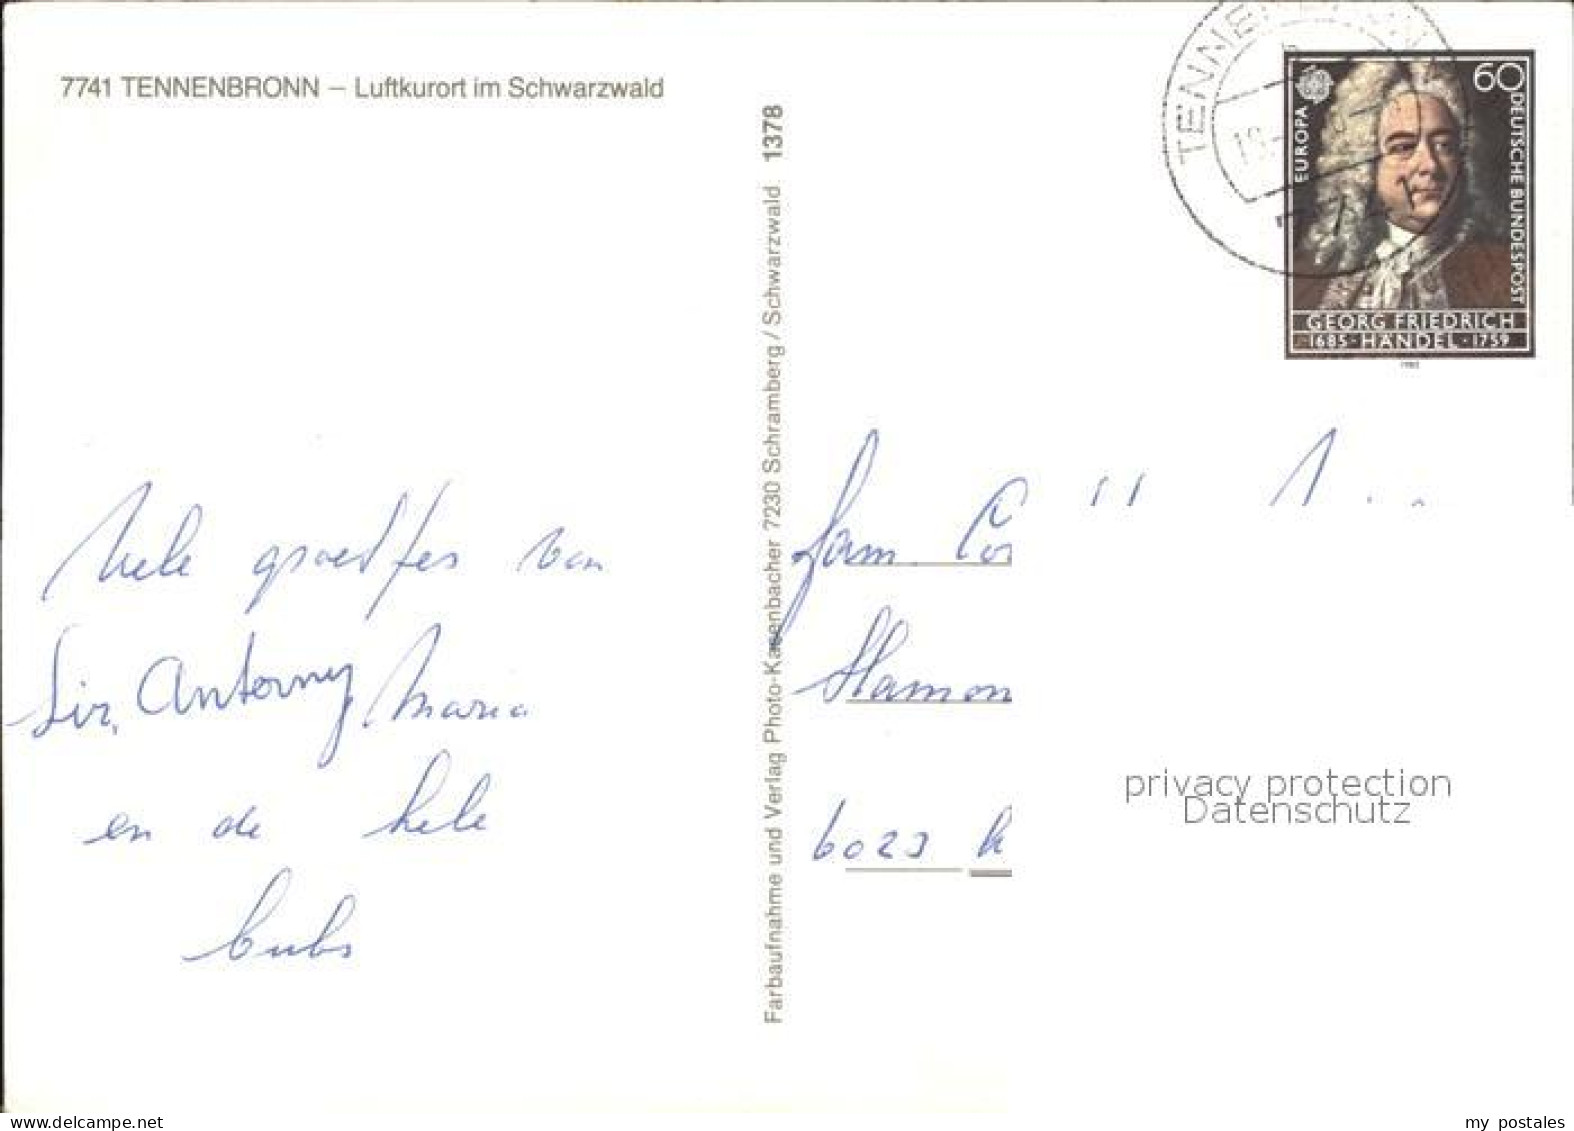 7741 TENNENBRONN – Luftkurort im Schwarzwald
Vele groetjes van
Sir, Antorny, Maria
en de hele
bubs
Farbaufnahme und Verlag Photo-Kasenbacher 7230 Schramberg / Schwarzwald 1378
TENNENBRONN
EUROPA
60
DEUTSCHE BUNDESPOST
GEORG FRIEDRICH
1685 · HÄNDEL · 1759
1985
fam. Co
6023
privacy protection
Datenschutz
www.delcampe.net
my postales